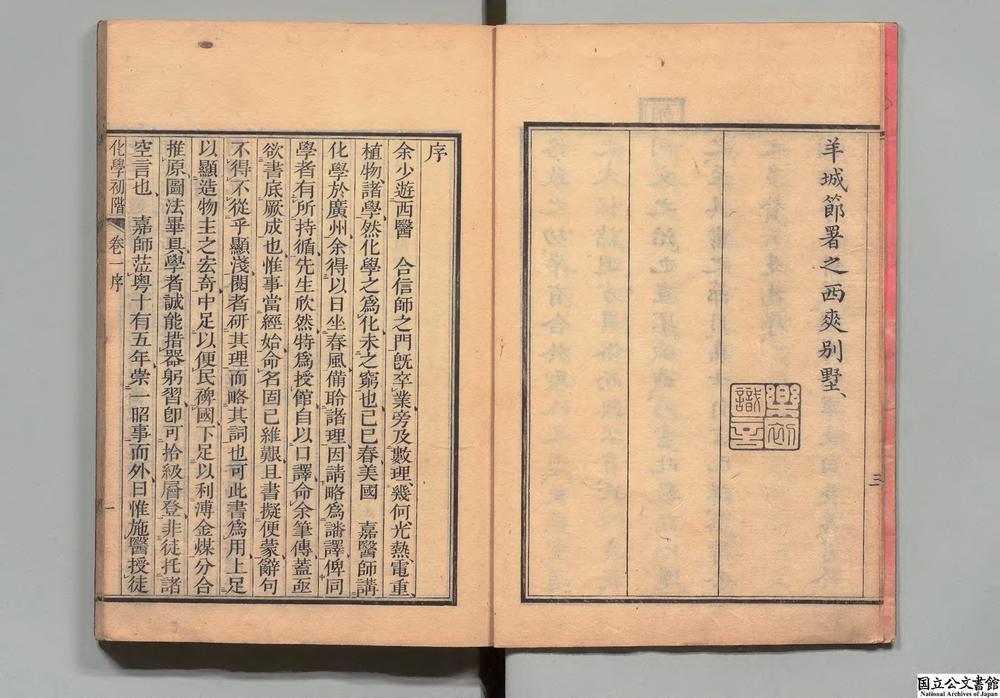 羊城節署之西爽別墅、
三
序
余少遊西醫　合信師之門旣卒業旁及數理幾何光熱電重、
植物諸學然化學之爲化未之窮也己巳春美國　嘉醫師講
化學於廣州余得以日坐春風備聆諸理因請略爲譒譯俾同
學者有所持循先生欣然特爲授館自以口譯命余筆傳蓋亟
欲書底厥成也惟事當經始命名固已維艱且書擬便蒙辭句
不得不從乎顯淺閱者硏其理而略其詞也可此書爲用上足
以顯造物主之宏奇中足以便民碑國下足以利溥金煤分合
推原圖法畢具學者誠能措器躬習卽可拾級層登非徒托諸
空言也　嘉師蒞粵十有五年祟一昭事而外日惟施醫授徒
化學初階
卷一序
一
国立公文書館
National Archives of Japan